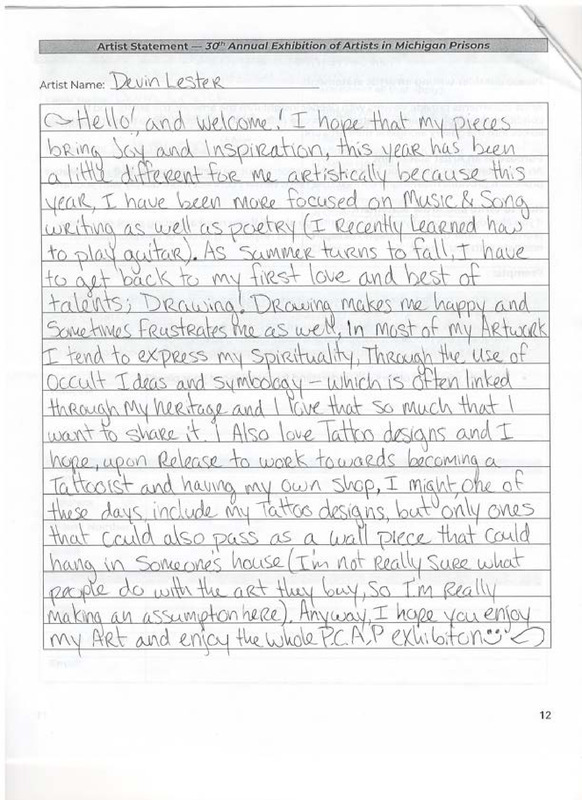 Artist Statement — 30th Annual Exhibition of Artists in Michigan Prisons
Artist Name: Devin Lester
Hello! and welcome! I hope that my pieces
bring Joy and Inspiration, this year has been
a little different for me artistically because this
year, I have been more focused on Music & Song
writing as well as poetry (I Recently Learned how
to play guitar). As Summer turns to fall, I have
to get back to my first love and best of
talents; Drawing! Drawing makes me happy and
Sometimes Frustrates me as well, In most of my Artwork
I tend to express my Spirituality, Through the use of
Occult Ideas and symbology – which is often linked
through my heritage and I love that so much that I
want to share it. I Also love Tattoo designs and I
hope, upon Release to work towards becoming a
Tattooist and having my own shop, I might, one of
these days, include my Tattoo designs, but only ones
that could also pass as a wall piece that could
hang in Someone's house (I'm not Really Sure what
people do with the art they buy, So I'm Really
making an assumption here). Anyway, I hope you enjoy
my Art and enjoy the whole P.C.A.P exhibiton
12